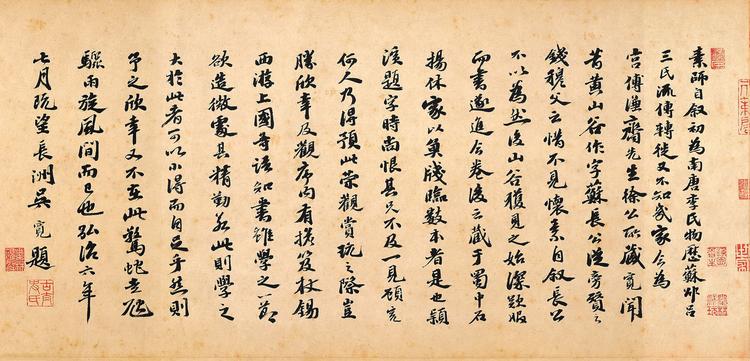 素師自叙初為南唐李氏物歷蘇邵呂
三氏流傳轉徙又不知幾家今為
宫傅謙齋先生徐公所藏寬聞
昔黄山谷作字蘇長公從旁賛之
錢穆父云惜不見懷素自叙長公
不以為然後山谷獲見之始深歎服
而書遂進今卷後云藏于蜀中石
揚休家以魚牋臨數本者是也潁
濱題字時尚恨其兄不及一見顧寬
何人乃得預此榮觀賞玩之際豈
勝欣幸及觀序内有擔笈杖錫
西遊上國等語知書雖學之一節
欲造微處其精勤若此則學之
大於此者可以小得而自足乎然則
予之欣幸又不在此驚蛇走虺
驟雨旋風間而已也弘治六年
七月既望長洲吳寬題